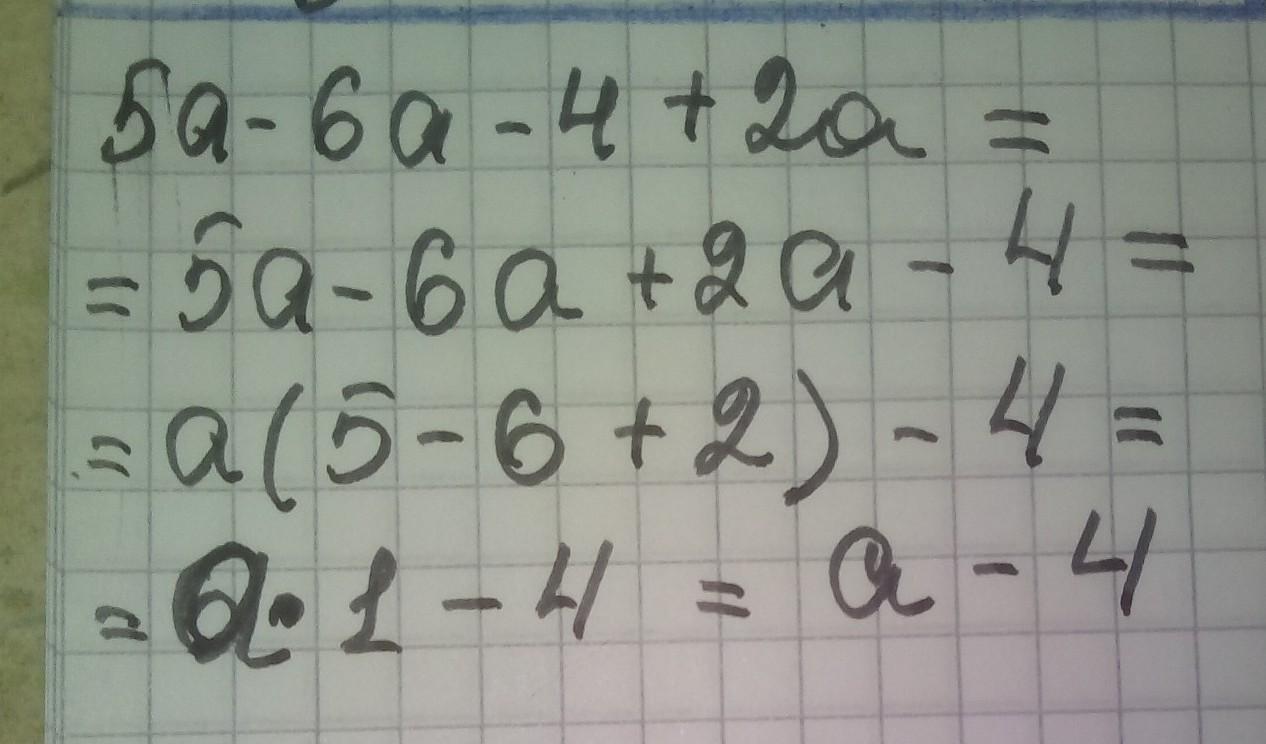 5a - 6a - 4 + 2a =
= 5a - 6a + 2a - 4 =
= a(5 - 6 + 2) - 4 =
= a · 1 - 4 = a - 4